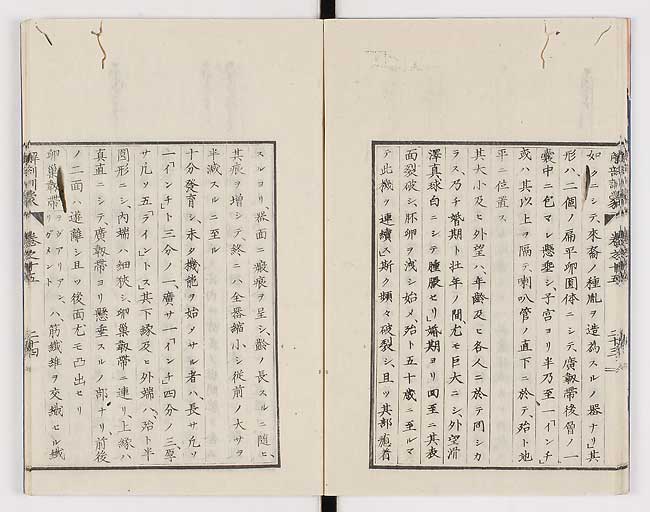 如クニシテ、來裔ノ種胤ヲ造爲スルノ器ナリ」其
形ハ二個ノ扁平卵圓体ニシテ、廣靱帶後層ノ一
嚢中ニ包マレ懸垂シ、子宮ヨリ半乃至一「インチ」
或ハ其以上ヲ隔テ、喇叭管ノ直下ニ於テ、殆ト地
平ニ位置ス
其大小及ヒ外望ハ、年齡及ヒ各人ニ於テ同シカ
ラス、乃チ婚期ト壮年ノ間、尤モ巨大ニシ、外望滑
澤、真球白ニシテ腫脹セリ」婚期ヨリ回至ニ其表
面裂破シ、胚卵ヲ洩シ始メ、殆ト五十歳ニ至ルマ
テ此機ヲ連續ス、斯ク頻々破裂シ、且ツ其部癒着
解剖訓蒙 卷之十五 二十三
スルヨリ、表面ニ瘢痕ヲ呈シ、齡ノ長スルニ随ヒ、
其痕ヲ増シテ、終ニハ全器縮小シ、從前ノ大サヲ
半減スルニ至ル
十分發育シ、未タ機能ヲ始メサル者ハ、長サ凡ソ
一「インチ」ト三分ノ一、廣サ一「インチ」四分ノ三、厚
サ凡ソ五「ライン」トス」其下縁及ヒ外端ハ、殆ト半
圓形ニシ、内端ハ細狹シ、卵巢靱帶ニ連リ、上縁ハ
真直ニシテ、廣靱帶ヨリ懸垂スルノ部ナリ、前後
ノ二面ハ遊離シ且ツ後面尤モ凸出セリ
卵巢靱帶 ヲヴアリアン、リガメント ハ、筋纖維ヲ交織セル纖
解剖訓蒙 卷之十五 二十四